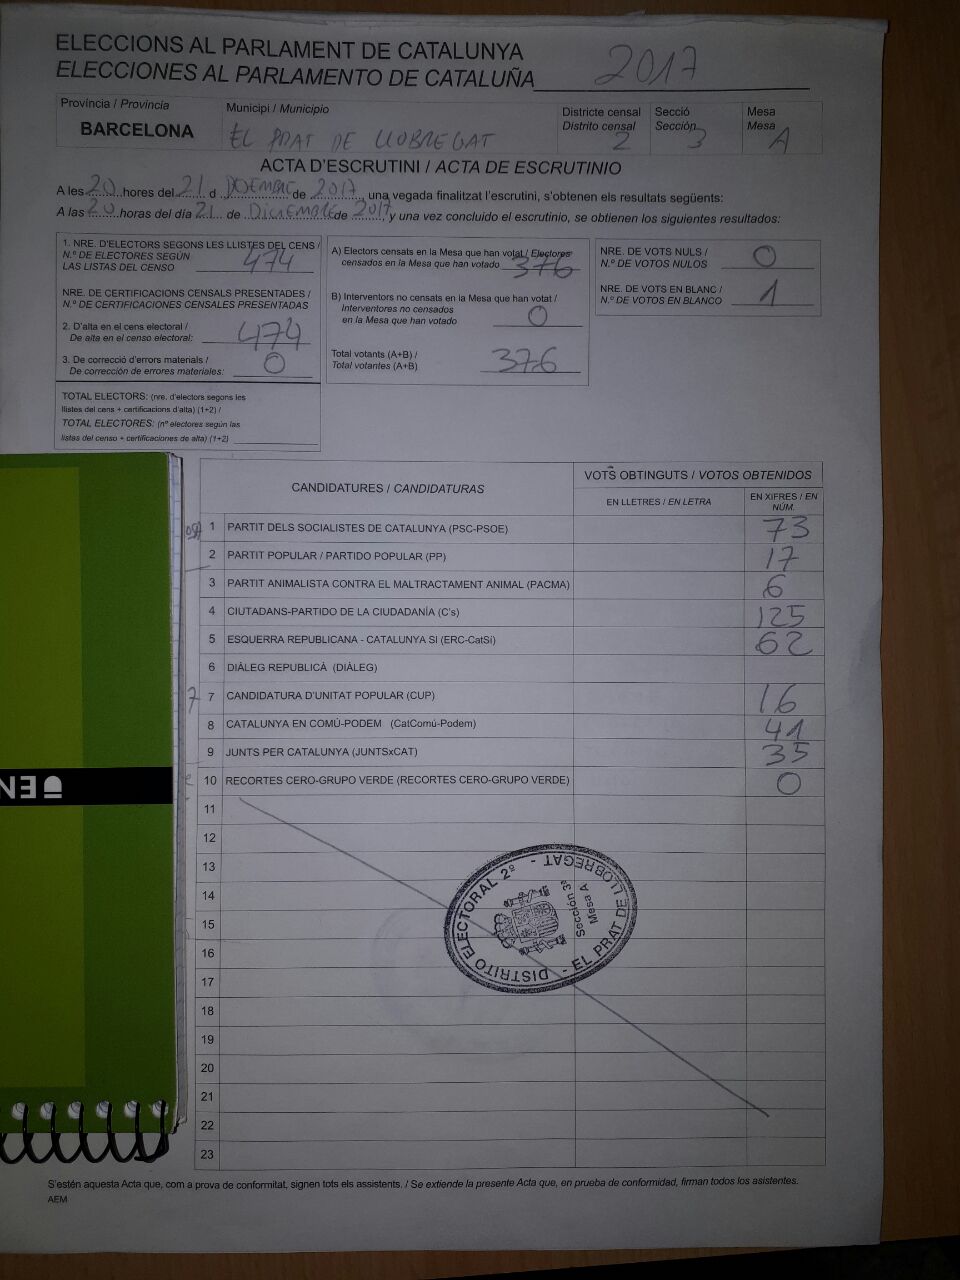 ELECCIONS AL PARLAMENT DE CATALUNYA
ELECCIONES AL PARLAMENTO DE CATALUÑA 2017
Província / Provincia
BARCELONA
Municipi / Municipio
EL PRAT DE LLOBREGAT
Districte censal
Distrito censal
2
Secció
Sección
3
Mesa
Mesa
A
ACTA D'ESCRUTINI / ACTA DE ESCRUTINIO
A les 20 hores del 21 d de 2017, una vegada finalitzat l'escrutini, s'obtenen els resultats següents:
A las 20 horas del día 21 de DICIEMBRE de 2017 y una vez concluido el escrutinio, se obtienen los siguientes resultados:
1. NRE. D'ELECTORS SEGONS LES LLISTES DEL CENS /
N.º DE ELECTORES SEGÚN
LAS LISTAS DEL CENSO 474
NRE. DE CERTIFICACIONS CENSALS PRESENTADES /
N.º DE CERTIFICACIONES CENSALES PRESENTADAS
2. D'alta en el cens electoral /
De alta en el censo electoral: 474
3. De correcció d'errors materials /
De corrección de errores materiales: 0
TOTAL ELECTORS: (nre. d'electors segons les
llistes del cens + certificacions d'alta) (1+2) /
TOTAL ELECTORES: (nº electores según las
listas del censo + certificaciones de alta) (1+2)
A) Electors censats en la Mesa que han votat / Electores
censados en la Mesa que han votado 376
B) Interventors no censats en la Mesa que han votat /
Interventores no censados
en la Mesa que han votado 0
Total votants (A+B) /
Total votantes (A+B) 376
NRE. DE VOTS NULS /
N.º DE VOTOS NULOS 0
NRE. DE VOTS EN BLANC /
N.º DE VOTOS EN BLANCO 1
CANDIDATURES / CANDIDATURAS
VOTS OBTINGUTS / VOTOS OBTENIDOS
EN LLETRES / EN LETRA
EN XIFRES / EN
NÚM.
1 PARTIT DELS SOCIALISTES DE CATALUNYA (PSC-PSOE) 73
2 PARTIT POPULAR / PARTIDO POPULAR (PP) 17
3 PARTIT ANIMALISTA CONTRA EL MALTRACTAMENT ANIMAL (PACMA) 6
4 CIUTADANS-PARTIDO DE LA CIUDADANÍA (C's) 125
5 ESQUERRA REPUBLICANA - CATALUNYA SÍ (ERC-CatSí) 62
6 DIÀLEG REPUBLICÀ (DIÀLEG)
7 CANDIDATURA D'UNITAT POPULAR (CUP) 16
8 CATALUNYA EN COMÚ-PODEM (CatComú-Podem) 41
9 JUNTS PER CATALUNYA (JUNTSxCAT) 35
10 RECORTES CERO-GRUPO VERDE (RECORTES CERO-GRUPO VERDE) 0
11
12
13
14
15
16
17
18
19
20
21
22
23
DISTRITO ELECTORAL 2ª - EL PRAT DE LLOBREGAT -
Sección 3ª
Mesa A
EN
S'estén aquesta Acta que, com a prova de conformitat, signen tots els assistents. / Se extiende la presente Acta que, en prueba de conformidad, firman todos los asistentes.
AEM